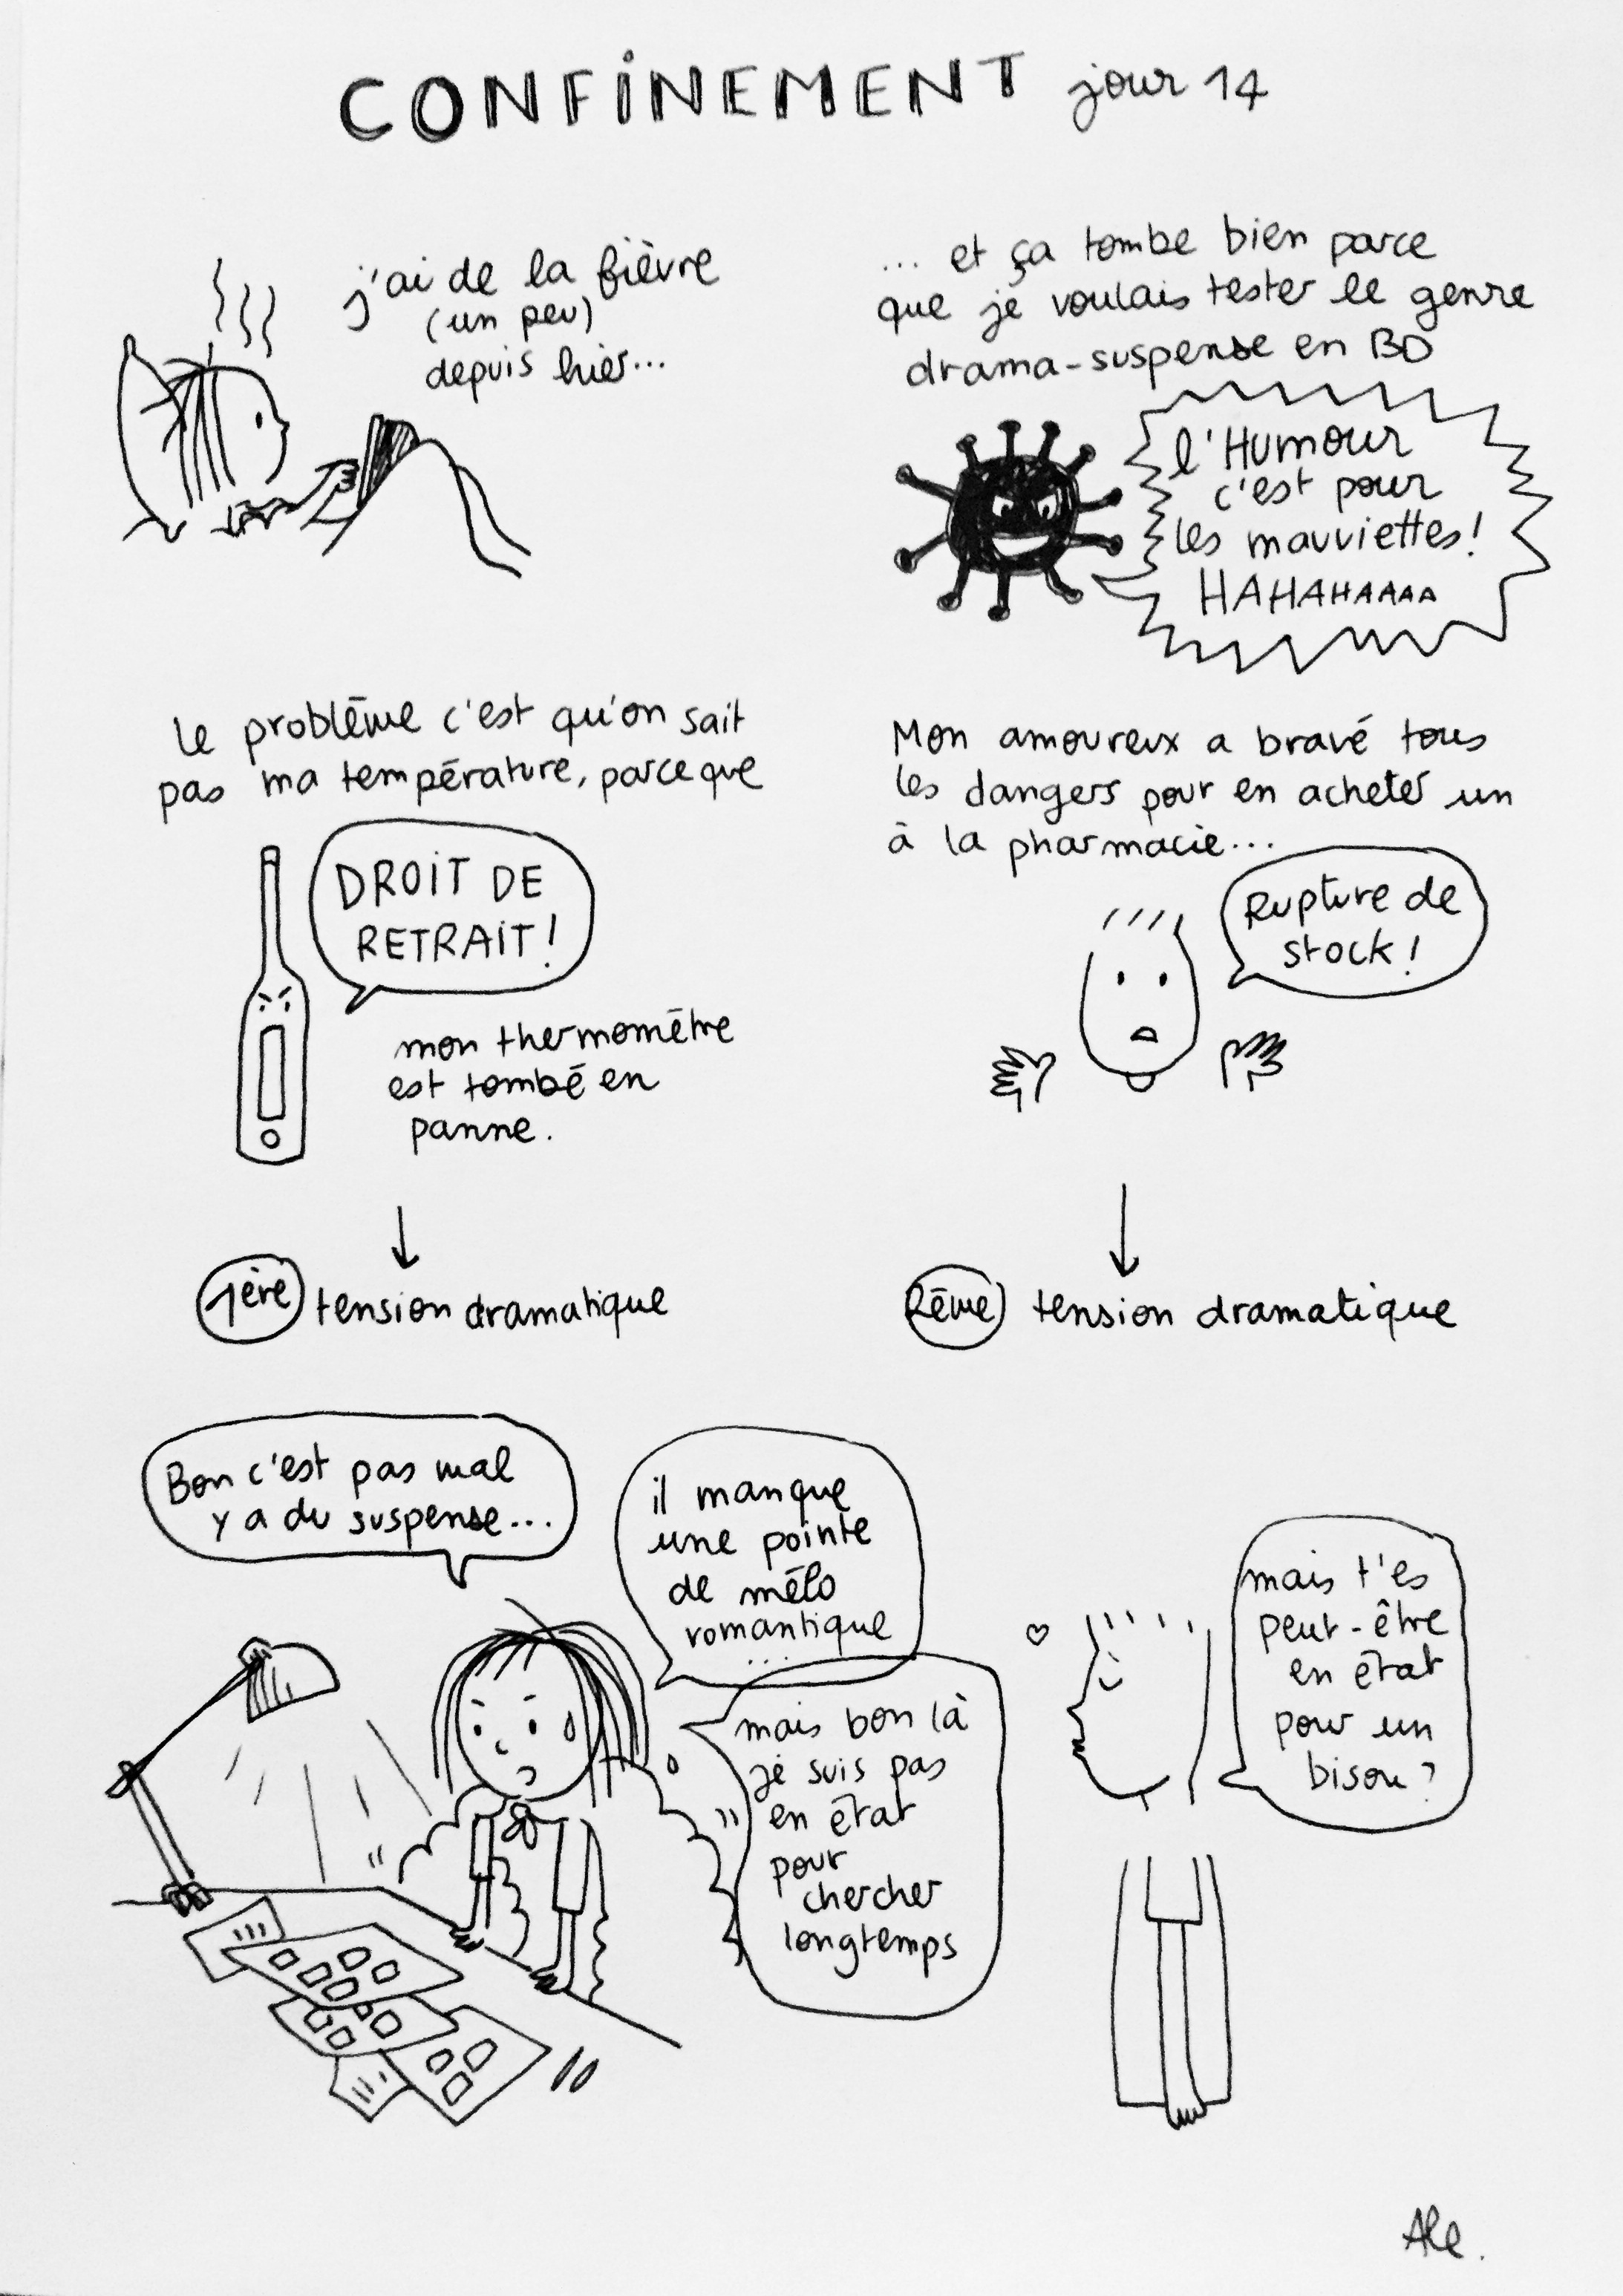 CONFINEMENT jour 14
j'ai de la fièvre
(un peu)
depuis hier...
... et ça tombe bien parce
que je voulais tester le genre
drama-suspense en BD
l'Humour
c'est pour
les mauviettes!
HAHAHAAAA
Le problème c'est qu'on sait
pas ma température, parce que
DROIT DE
RETRAIT!
mon thermomètre
est tombé en
panne.
Mon amoureux a bravé tous
les dangers pour en acheter un
à la pharmacie...
Rupture de
stock!
1ère tension dramatique
2ème tension dramatique
Bon c'est pas mal
y a du suspense...
il manque
une pointe
de mélo
romantique
...
mais bon là
je suis pas
en état
pour
chercher
longtemps
mais t'es
peut-être
en état
pour un
bisou?
Ale.